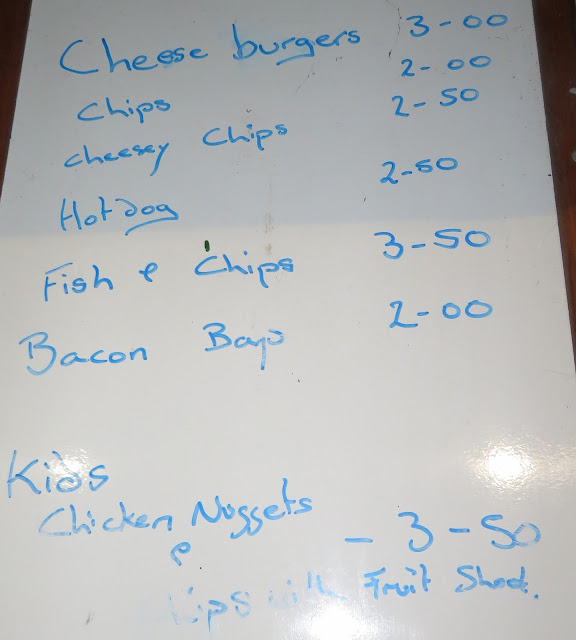 Cheese burgers 3-00
Chips 2-00
cheesey Chips 2-50
Hotdog 2-50
Fish & Chips 3-50
Bacon Baps 2-00
Kids
Chicken Nuggets
& - 3-50
hips with Fruit Shoot.